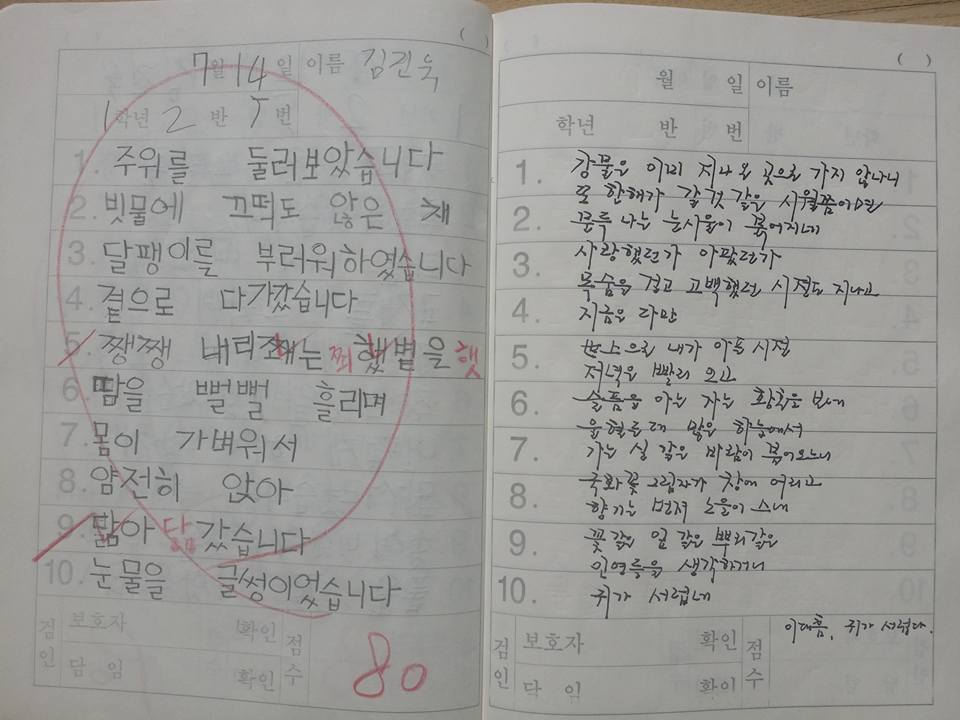 ( )
7월 14일 이름 김건욱
1학년 2반 5번
1. 주위를 둘러보았습니다
2. 빗물에 끄떡도 않은 채
3. 달팽이를 부러워하였습니다
4. 곁으로 다가갔습니다
5. 쨍쨍 내리쬐는 쬐 햇볕을 햇
6. 땀을 뻘뻘 흘리며
7. 몸이 가벼워서
8. 얌전히 앉아
9. 닮아 갔습니다
10. 눈물을 글썽이었습니다
검인 보호자 확인 점수
담임 확인
80
( )
월 일 이름
학년 반 번
1. 강물은 이미 지나온 곳으로 가지 않나니
또 한해가 갈 것 같은 시월쯤이면
2. 문득 나는 눈시울이 붉어지네
3. 사랑했던가 아팠던가
목숨을 걸고 고백했던 시절도 지나고
4. 지금은 다만
5. 世上으로 내가 아픈 시절
저녁은 빨리 오고
6. 슬픔을 아는 자는 황혼을 보네
울혈든 데 많은 하늘에서
7. 가는 실 같은 바람이 불어오느니
8. 국화꽃 그림자가 창에 어리고
향기는 번져 노을이 스네
9. 꽃 같은 잎 같은 뿌리 같은
인연들을 생각하거니
10. 귀가 서럽네
이대흠, 귀가 서럽다.
검인 보호자 확인 점수
담임 확인